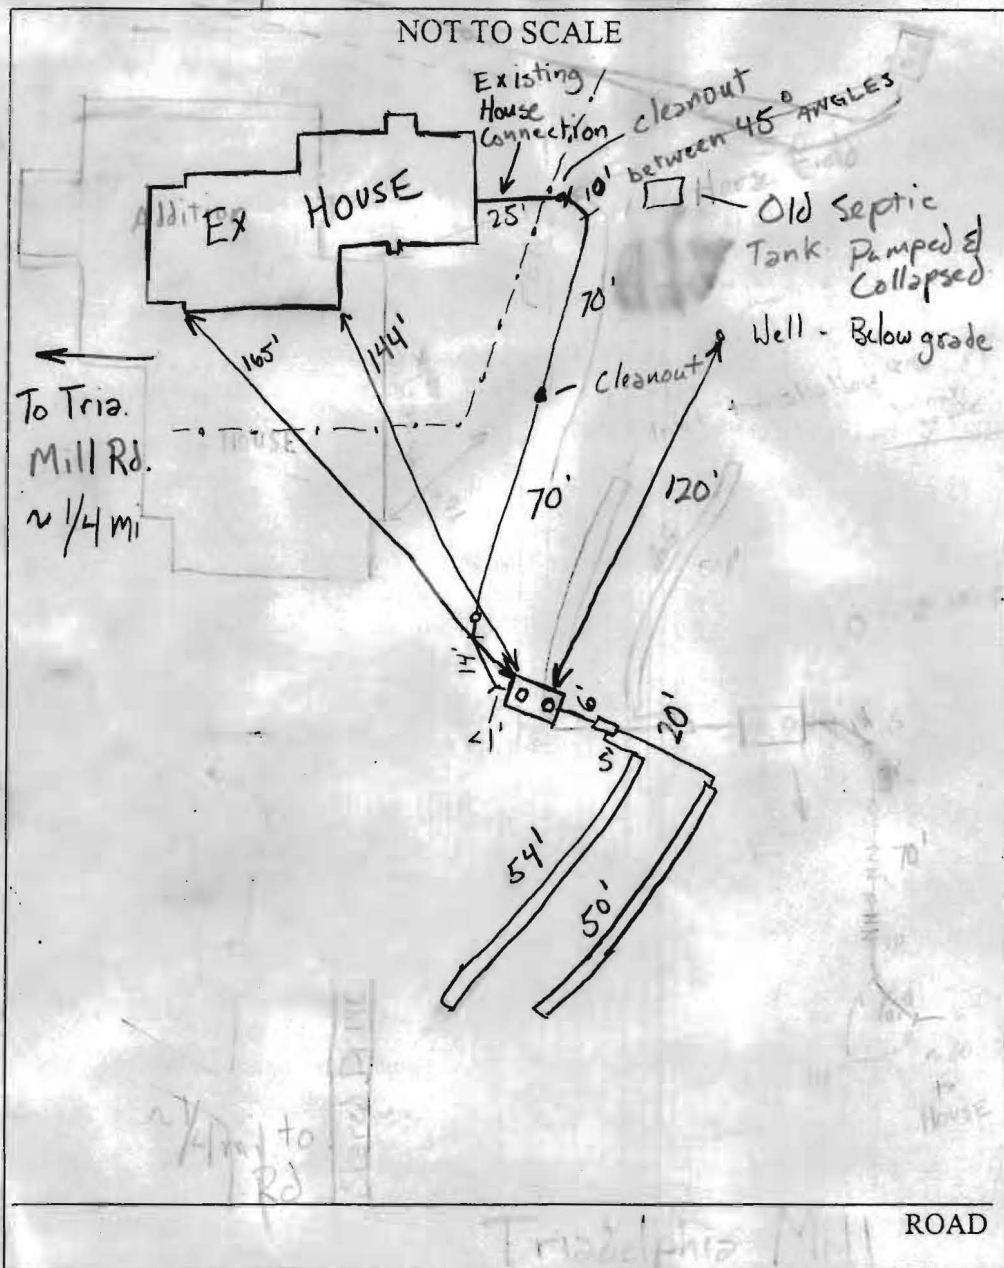 NOT TO SCALE
Existing
House
Connection
cleanout
between 45° ANGLES
Ex HOUSE
Addition
25'
10'
House
Old Septic
Tank Pumped &
Collapsed
70'
165'
144'
Well - Below grade
Cleanout
To Tria.
Mill Rd.
~ 1/4 mi
HOUSE
70'
120'
14'
<1'
6'
20'
5'
54'
50'
70'
to
House
~ 1/4 mi to
Rd
ROAD
Triadelphia Mill